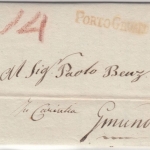 14
PORTO GRUARO
Al Sigr Paolo Benz
in Carintia
Gmund